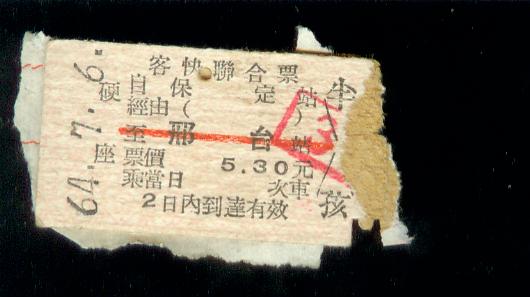 客快聯合票
硬座
自保定站
經由( )
至邢台站
票價 5.30元
乘當日 次車
2日內到達有效
64.7.6.
孩